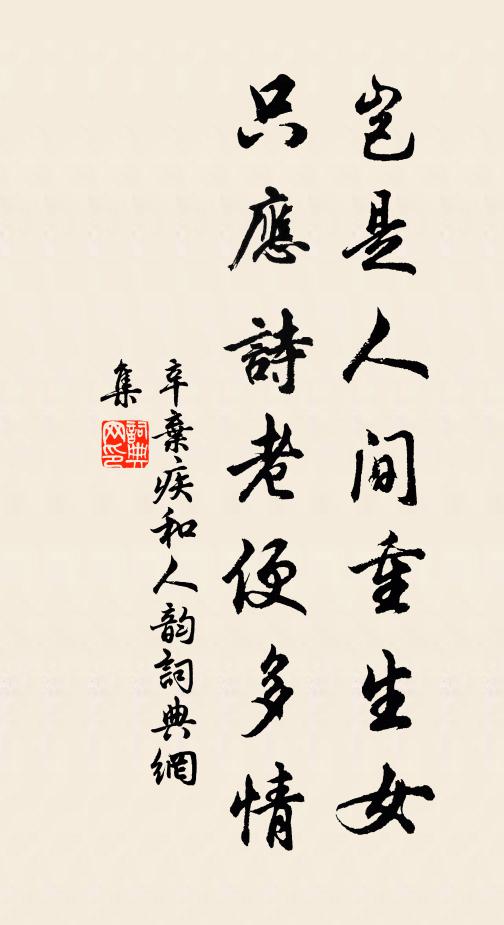 豈是人間重生女
只應詩老便多情
辛棄疾和人韵詞典網
集
詞典网印